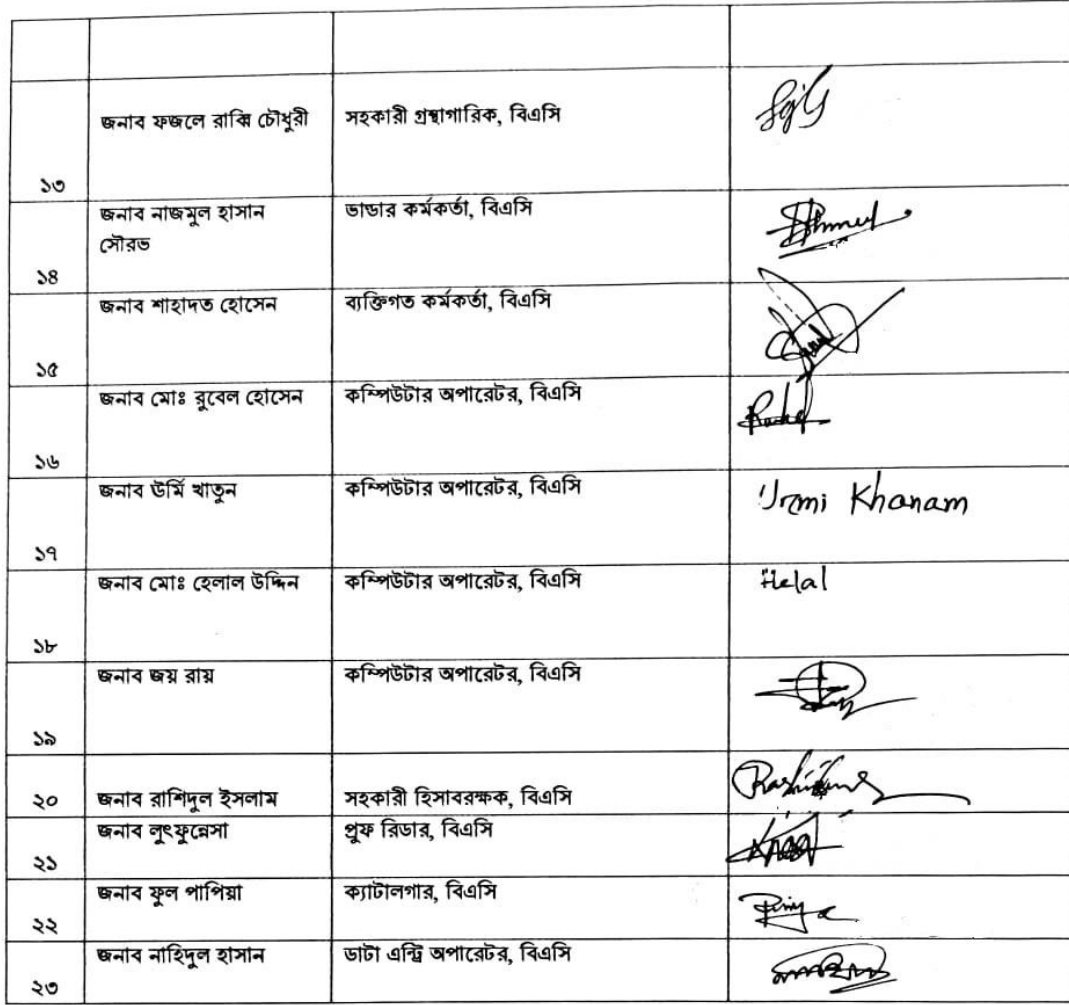 জনাব ফজলে রাব্বি চৌধুরী সহকারী গ্রন্থাগারিক, বিএসি
১৩
জনাব নাজমুল হাসান ভান্ডার কর্মকর্তা, বিএসি
সৌরভ
১৪
জনাব শাহাদত হোসেন ব্যক্তিগত কর্মকর্তা, বিএসি
১৫
জনাব মোঃ রুবেল হোসেন কম্পিউটার অপারেটর, বিএসি
১৬
জনাব উর্মি খাতুন কম্পিউটার অপারেটর, বিএসি Urmi Khanam
১৭
জনাব মোঃ হেলাল উদ্দিন কম্পিউটার অপারেটর, বিএসি Helal
১৮
জনাব জয় রায় কম্পিউটার অপারেটর, বিএসি
১৯
২০ জনাব রাশিদুল ইসলাম সহকারী হিসাবরক্ষক, বিএসি
জনাব লুৎফুন্নেসা প্রুফ রিডার, বিএসি
২১
জনাব ফুল পাপিয়া ক্যাটালগার, বিএসি
২২
জনাব নাহিদুল হাসান ডাটা এন্ট্রি অপারেটর, বিএসি
২৩